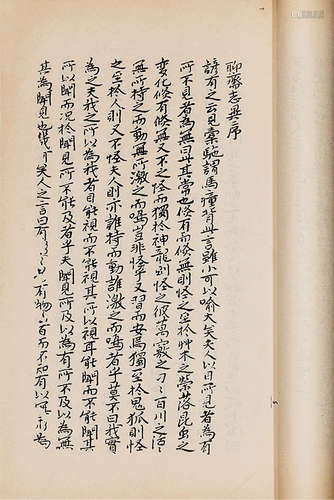 聊齋志異序
諺有之云見橐駞謂馬腫背此言雖小可以喻大矣夫人以目所見者為有
所不見者為無曰此其常也倏有而倏無則怪之至於草木之榮落昆虫之
變化倏有倏無又不之怪而獨於神龍則怪之彼萬竅之刁刁百川之活活
無所持之而動無所激之而鳴豈非怪乎又習而安焉獨至於鬼狐則怪
之至於人則又不怪夫人則亦誰持而動誰激之而鳴者乎莫不曰我實
為之夫我之所以為我者目能視而不能視其所以視耳能聞而不能聞其
所以聞而況於聞見所不能及者乎夫聞見所及以為有所不及以為無
其為聞見也幾何矣人之言曰有形形者有物物者而不知有以無形為